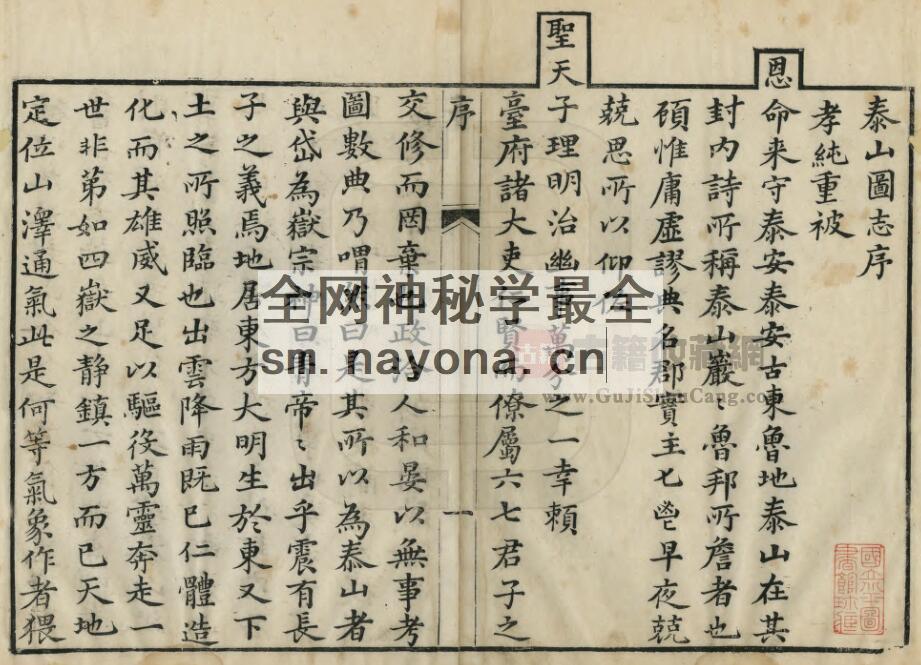 泰山圖志序
孝純重被
恩命来守泰安泰安古東魯地泰山在其
封内詩所稱泰山巖〻魯邦所詹者也
頋惟庸虛謬典名郡實主匕鬯早夜兢
兢思所以仰
聖天子理明治幽萬分之一幸頼
臺府諸大吏賢而僚屬六七君子之
序 一
交修而罔棄也政人和晏以無事考
圖數典乃喟然曰是其所以為泰山者
與岱為嶽宗神曰青帝〻出乎震有長
子之義焉地居東方大明生於東又下
土之所照臨也出雲降雨既已仁體造
化而其雄威又足以驅役萬靈奔走一
世非第如四嶽之静鎮一方而已天地
定位山澤通氣此是何等氣象作者猥
全网神秘学最全
sm.nayona.cn
古籍收藏網
www.GuJiShuCang.com